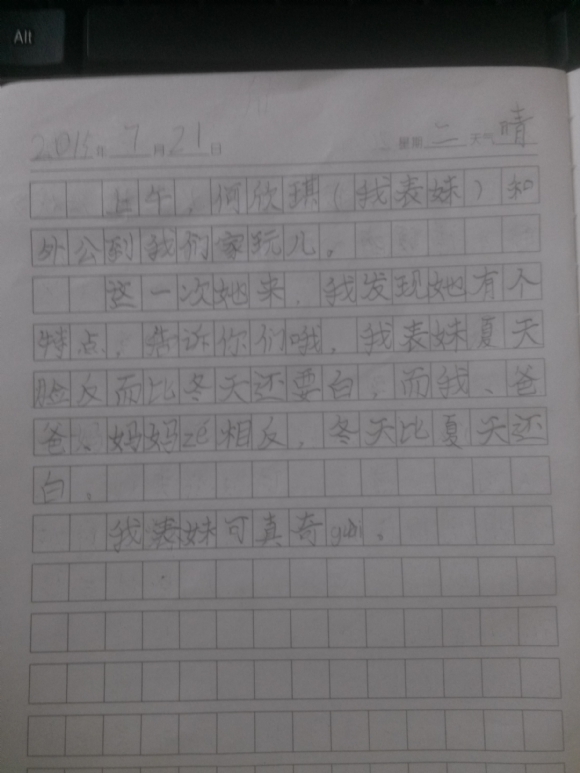 Alt
2015年7月21日 星期二 天气晴
上午，何欣琪（我表妹）和
外公到我们家玩儿。
这一次她来，我发现她有个
特点，告诉你们哦，我表妹夏天
脸反而比冬天还要白，而我、爸
爸、妈妈zé相反，冬天比夏天还
白。
我表妹可真奇guài。